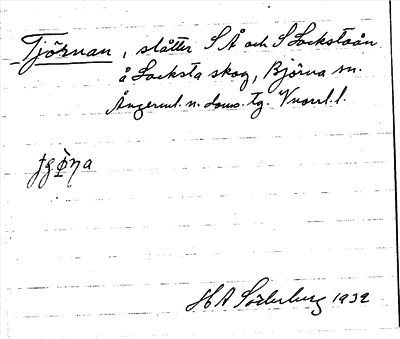 Tjörnan, slåtter S Å och S Lockstaån
å Locksta skog, Björna sn.
Ångerml. n. doms. tg. Vnorrl. l.
H A Söderberg 1932